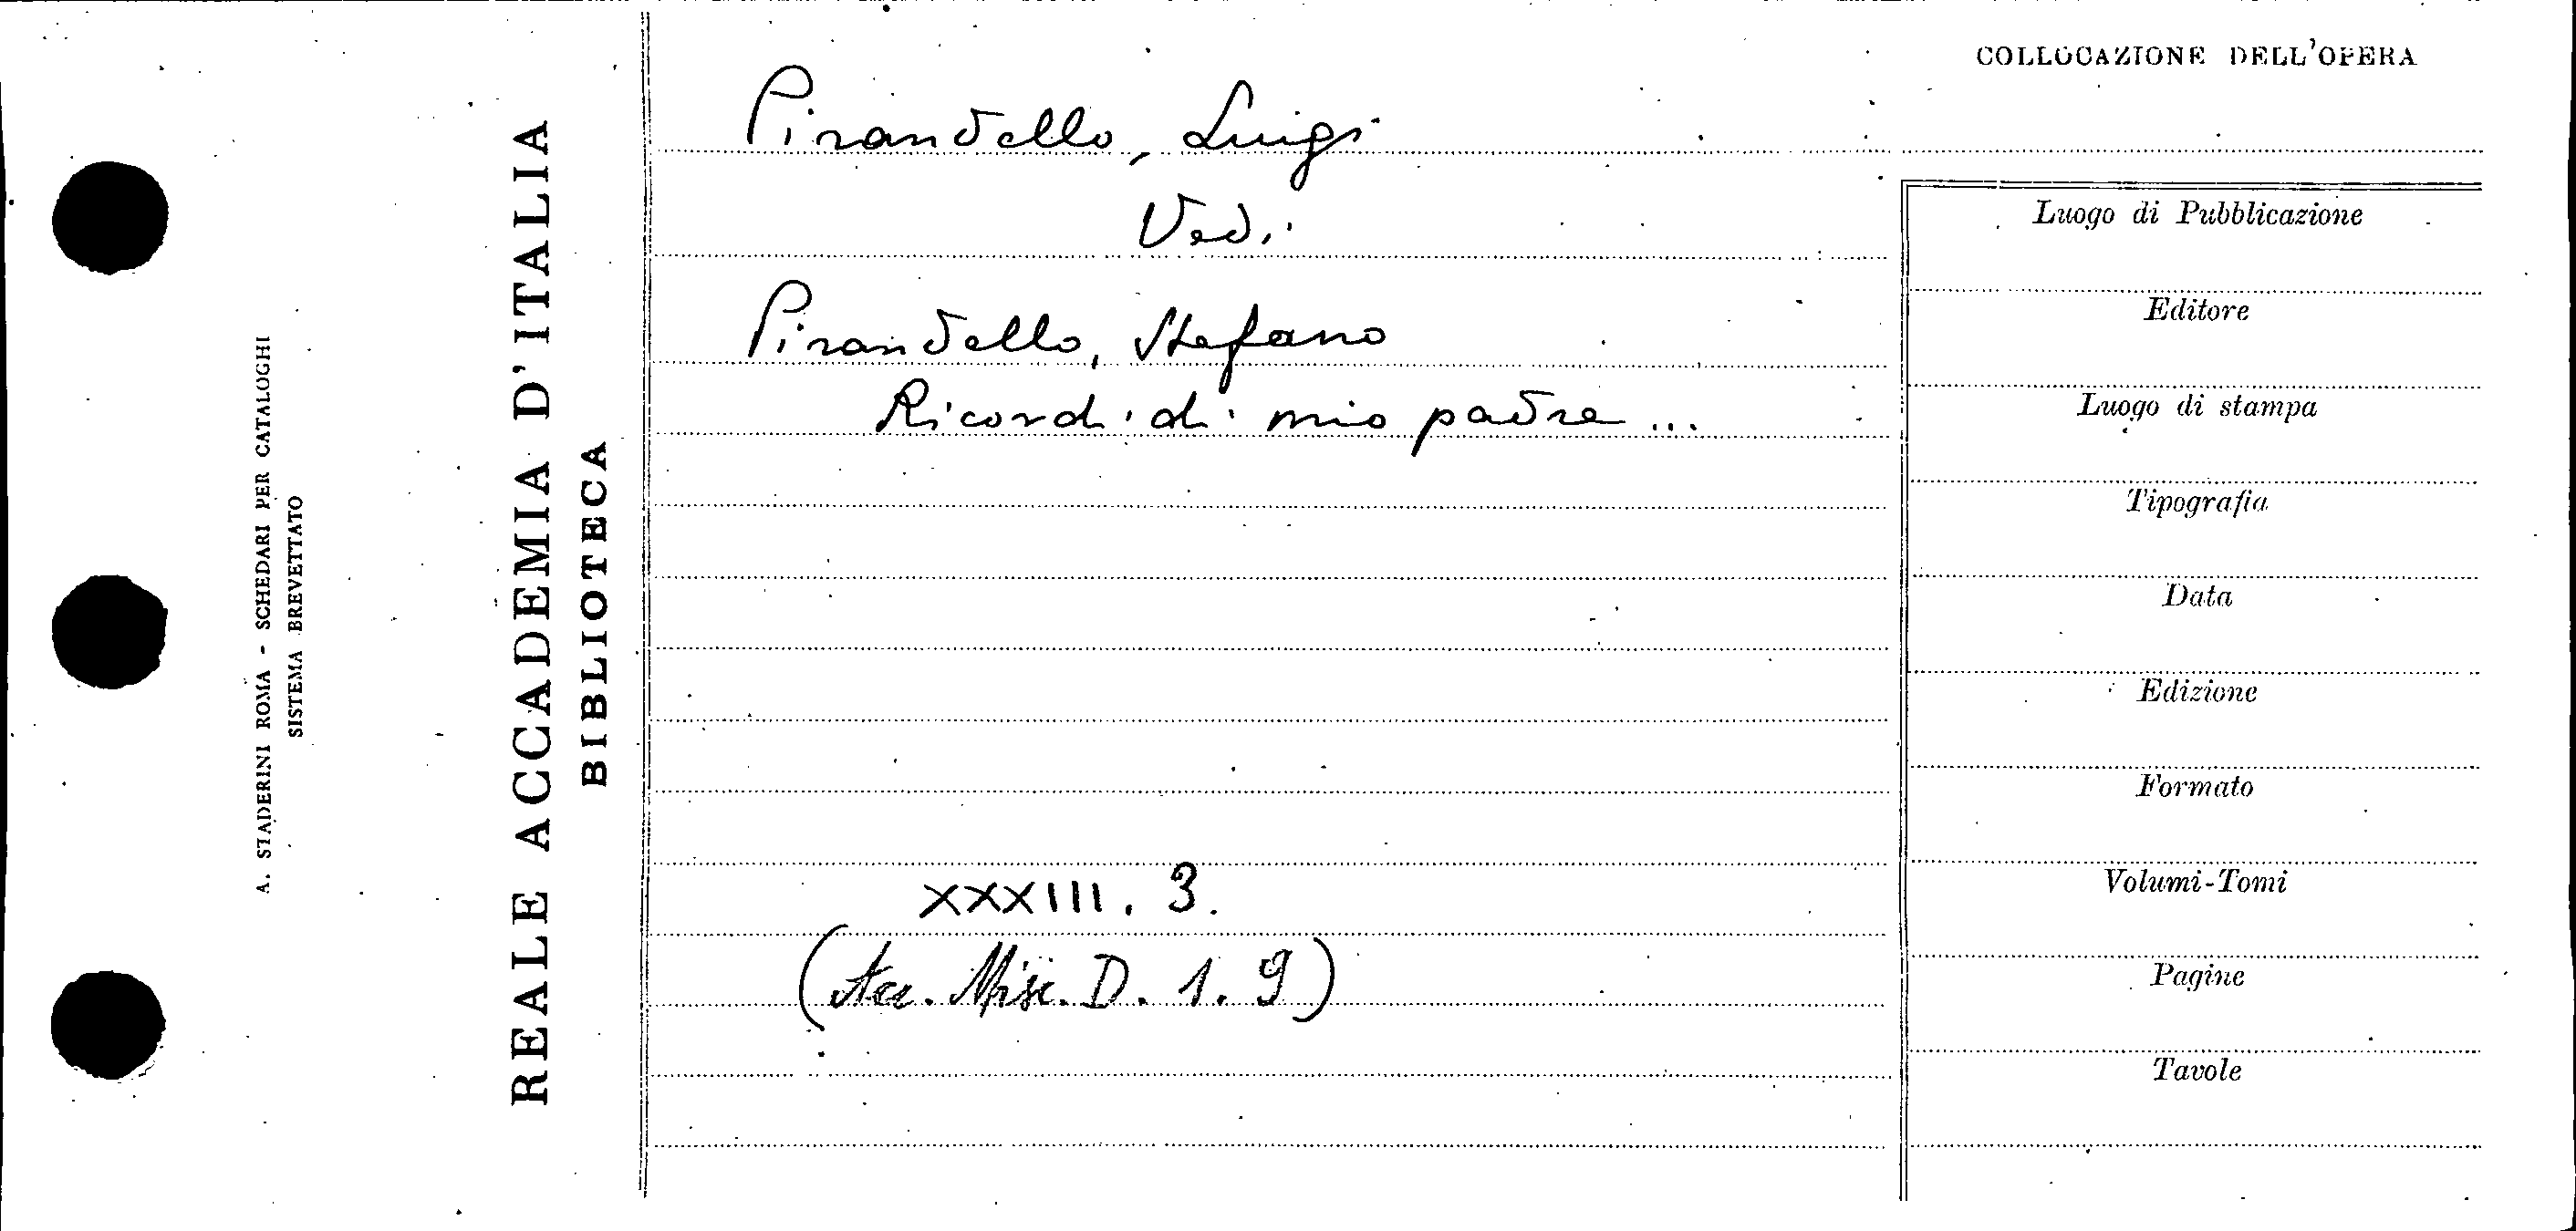 A. STADERINI ROMA - SCHEDARI PER CATALOGHI
SISTEMA BREVETTATO
REALE ACCADEMIA D'ITALIA
BIBLIOTECA
Pirandello, Luigi
Vedi
Pirandello, Stefano
Ricordi di mio padre ...
XXXIII. 3.
(Acc. Misc. D. 1. 9)
COLLOCAZIONE DELL'OPERA
Luogo di Pubblicazione
Editore
Luogo di stampa
Tipografia
Data
Edizione
Formato
Volumi-Tomi
Pagine
Tavole